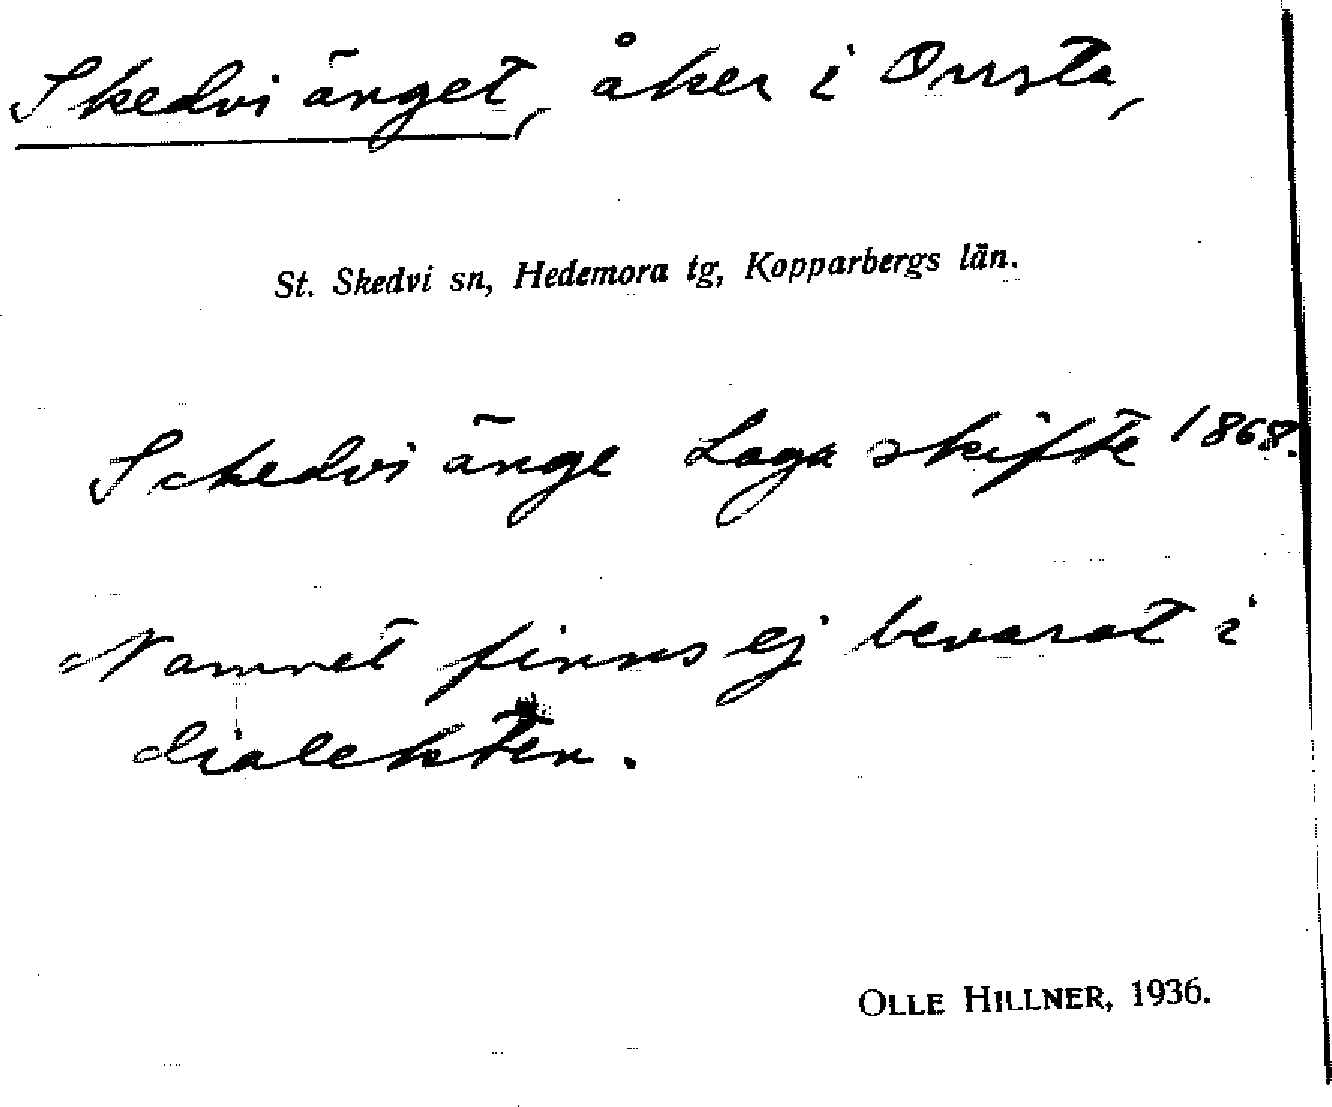 Skedviänget, åker i Onsta,
St. Skedvi sn, Hedemora tg, Kopparbergs län.
Schedviänge Laga skifte 1868.
Namnet finns ej bevarat i
dialekten.
OLLE HILLNER, 1936.